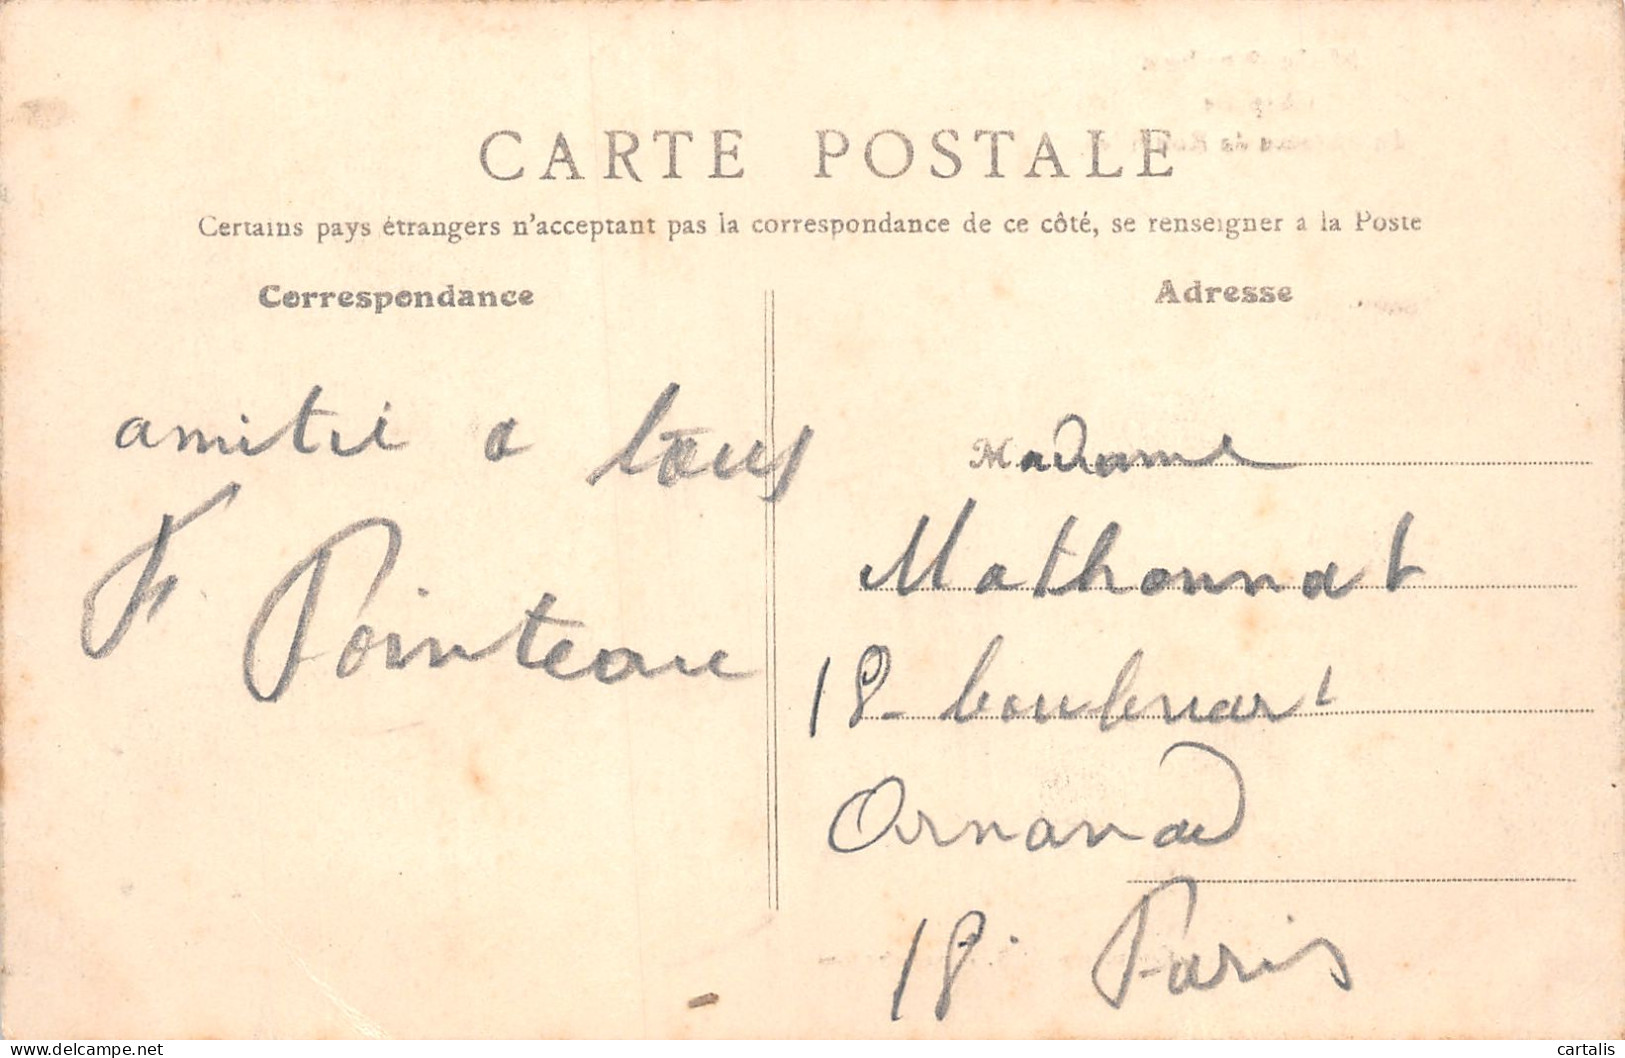 CARTE POSTALE
Certains pays étrangers n'acceptant pas la correspondance de ce côté, se renseigner a la Poste
Correspondance
amitié a tous
F. Pointeau
Adresse
Madame
Mathonnat
18 - boulevart
Ornano
18e Paris
cartalis
www.delcampe.net